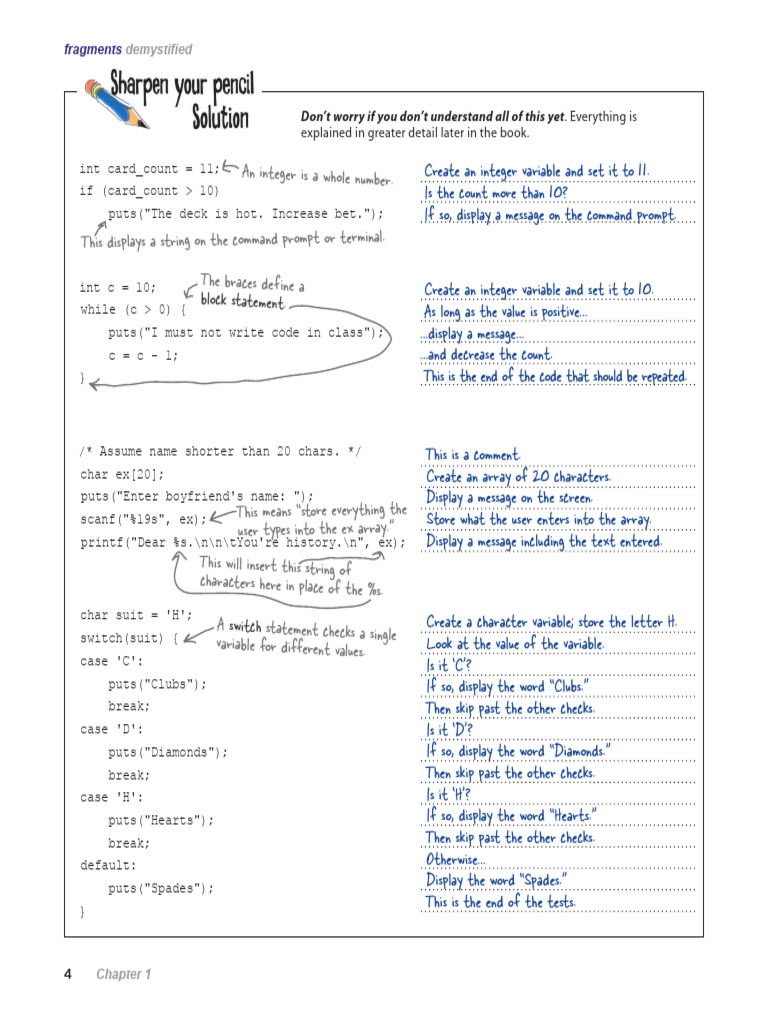 fragments demystified
Sharpen your pencil
Solution
Don't worry if you don't understand all of this yet. Everything is
explained in greater detail later in the book.
int card_count = 11;
An integer is a whole number.
Create an integer variable and set it to 11.
if (card_count > 10)
Is the count more than 10?
puts("The deck is hot. Increase bet.");
If so, display a message on the command prompt.
This displays a string on the command prompt or terminal.
int c = 10;
The braces define a
block statement.
Create an integer variable and set it to 10.
while (c > 0) {
As long as the value is positive...
puts("I must not write code in class");
...display a message...
c = c - 1;
...and decrease the count.
}
This is the end of the code that should be repeated.
/* Assume name shorter than 20 chars. */
This is a comment.
char ex[20];
Create an array of 20 characters.
puts("Enter boyfriend's name: ");
Display a message on the screen.
scanf("%19s", ex);
This means "store everything the
user types into the ex array."
Store what the user enters into the array.
printf("Dear %s.\n\n\tYou're history.\n", ex);
Display a message including the text entered.
This will insert this string of
characters here in place of the %s.
char suit = 'H';
Create a character variable; store the letter H.
switch(suit) {
A switch statement checks a single
variable for different values.
Look at the value of the variable.
case 'C':
Is it 'C'?
puts("Clubs");
If so, display the word "Clubs."
break;
Then skip past the other checks.
case 'D':
Is it 'D'?
puts("Diamonds");
If so, display the word "Diamonds."
break;
Then skip past the other checks.
case 'H':
Is it 'H'?
puts("Hearts");
If so, display the word "Hearts."
break;
Then skip past the other checks.
default:
Otherwise...
puts("Spades");
Display the word "Spades."
}
This is the end of the tests.
4 Chapter 1